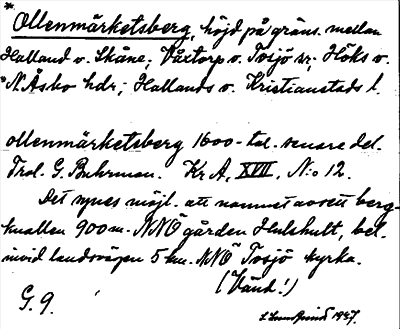 *Ollenmärketsberg, höjd på gräns. mellan
Halland o. Skåne; Våxtorp o. Tosjö sn:r; Höks o.
*N. Åsbo hdr; Hallands o. Kristianstads l.
Ollenmärketsberg 1600-tal. senare del.
Trol. G. Buhrman. Kr. A. XVII, N:o 12.
Det synes möjl. att namnet avsett berg-
knallen 900 m. NNÖ gården Hulshult, bel.
invid landsvägen 5 km. NNÖ Tosjö kyrka.
(Vänd!)
G. 9.
1947.